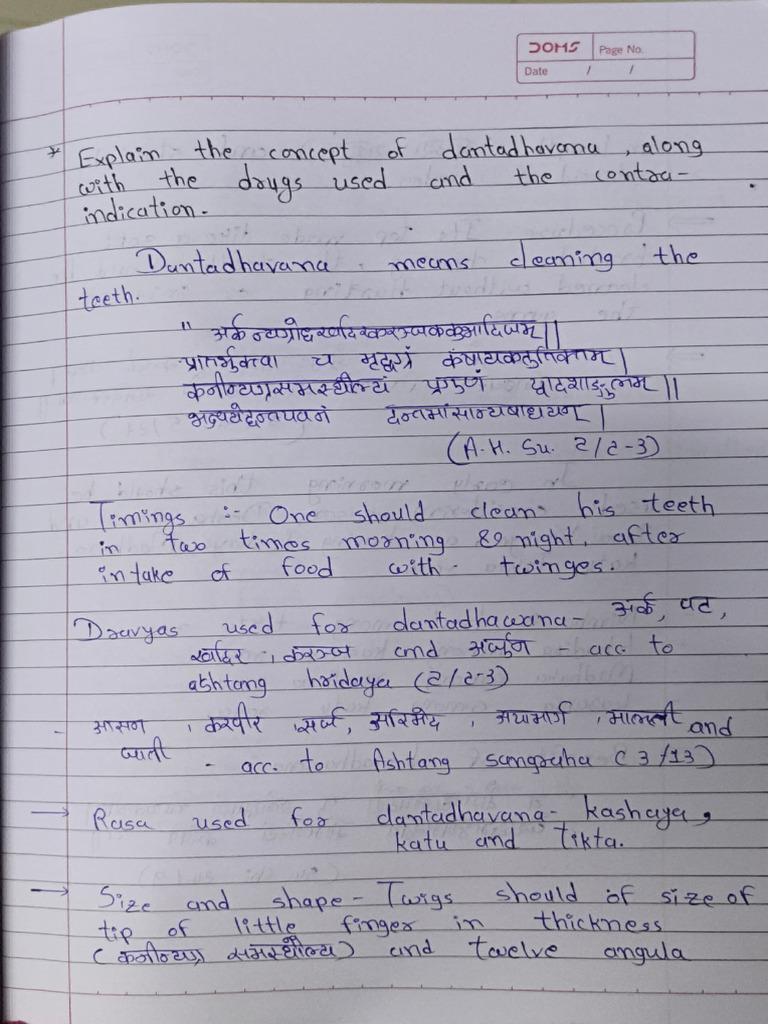 DOMS
Page No.
Date / /
* Explain the concept of dantadhavana, along
with the drugs used and the contra-
indication.
Dantadhavana means cleaning the
teeth.
" अर्क न्यग्रोधखदिरकरञ्जककुभादिजम् ||
प्रातर्भुक्त्वा च मृद्वग्रं कषायकटुतिक्तकम् |
कनीन्यग्रसमस्थौल्यं प्रगुणं द्वादशाङ्गुलम ||
भक्षयेद्दन्तपवनं दन्तमांसान्यबाधयन् |
(A.H. Su. 2/2-3)
Timings :- One should clean his teeth
in two times morning & night, after
intake of food with twinges.
Dravyas used for dantadhawana- अर्क, वट,
खदिर, करञ्ज and अर्जुन - acc. to
ashtang hridaya (2/2-3)
- आसन, करवीर, सर्ज, अरिमेद, अपामार्ग, मालती and
जाती - acc. to Ashtang sangraha (3/13)
→ Rasa used for dantadhavana- kashaya,
katu and Tikta.
→ Size and shape - Twigs should of size of
tip of little finger in thickness
(कनीन्यग्र समस्थौल्य) and twelve angula